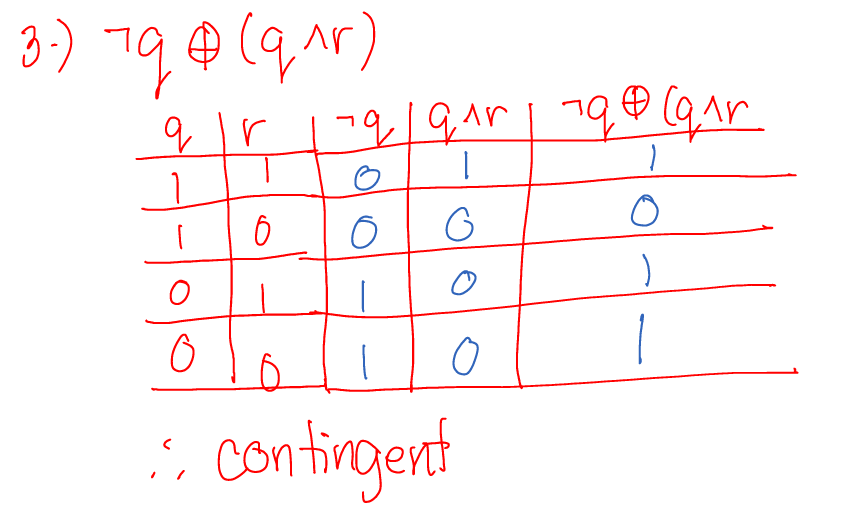 3.) ¬q ⊕ (q ∧ r)
q r ¬q q ∧ r ¬q ⊕ (q ∧ r
1 1 0 1 1
1 0 0 0 0
0 1 1 0 1
0 0 1 0 1
∴ contingent